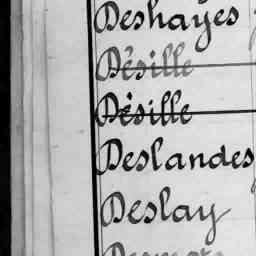 Deshayes
Désille
Désille
Deslandes
Deslay